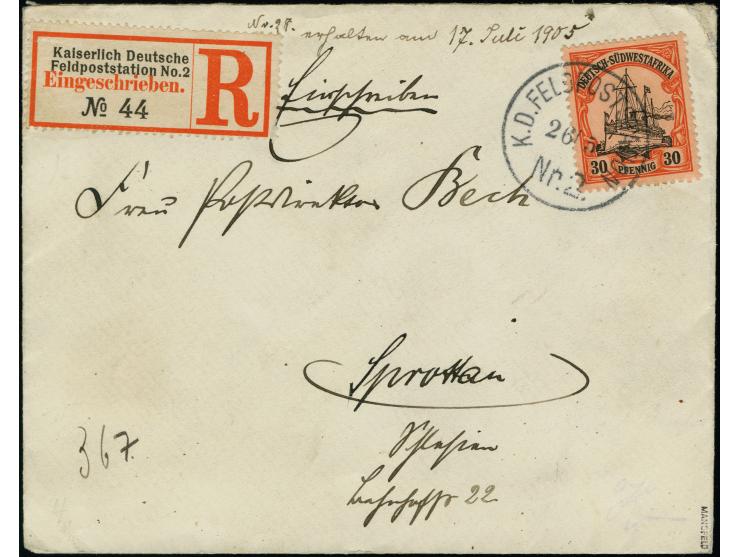 Nr. 28. erhalten am 17. Juli 1905
Kaiserlich Deutsche
Feldpoststation No.2
Eingeschrieben.
№ 44
R
Einschreiben
K.D. FELDPOST
26/5
Nr.2.
DEUTSCH-SÜDWESTAFRIKA
30 PFENNIG 30
Frau Postdirektor Bech
Sprottau
Schlesien
Bahnhofstr 22
367.
MANSFELD